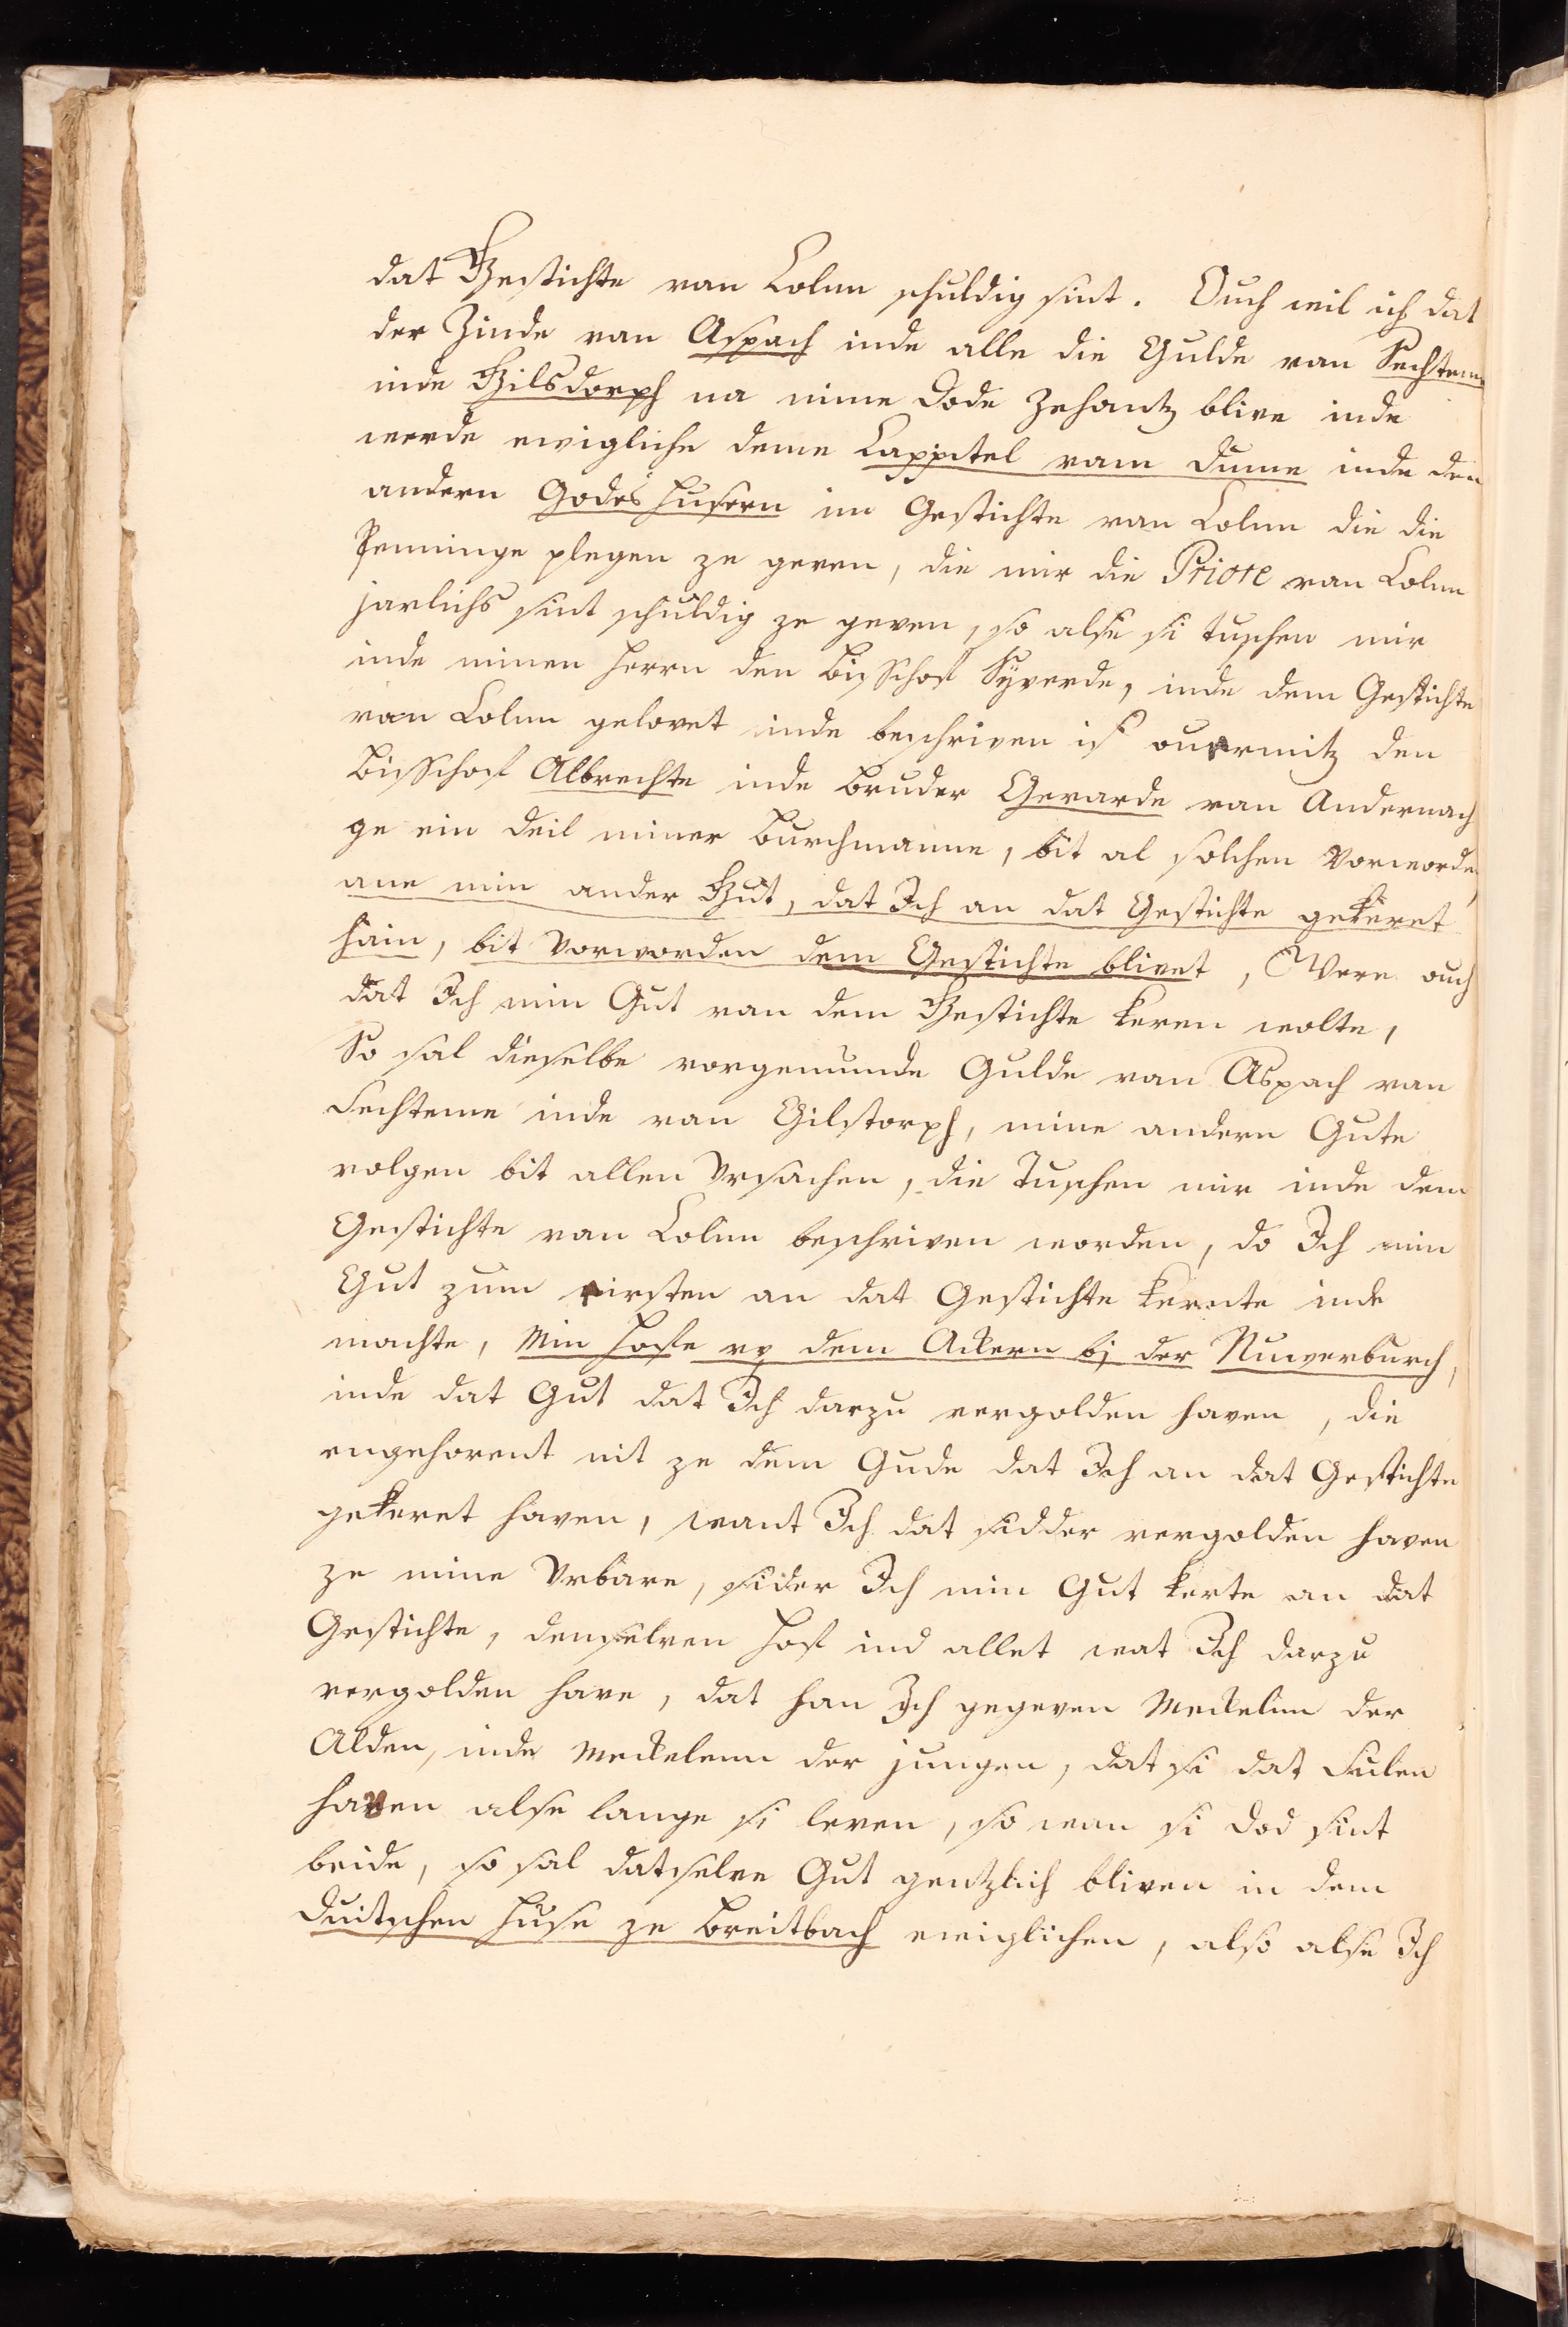 dat Gestichte van Colne schuldig sint. Ouch wil ich dat
der Zinde van Aspach inde alle die Gulde van Sechteme
inde Gilsdorph na mime Dode Zehantz blive inde
werde ewigliche deme Cappitel vam Dume inde den
andern Godes Husern im Gestichte van Colne die die
Penninge plegen ze geven, die mir die Priore van Colne
jarlichs sint schuldig ze geven, so alse si tuschen mir
inde minen Herrn den Bisschof Syverde, inde dem Gestichte
van Colne gelovet inde beschriven is overmitz den
Bisschof Albrechte inde Bruder Gerarde van Andernach
ge ein Deil miner Burchmanne, bit al solchen Vorworden,
ane min ander Gut, dat Ich an dat Gestichte gekeret
hain, bit Vorworden dem Gestichte blivet, Were ouch
dat Ich min Gut van dem Gestichte keren wolte,
So sal dieselbe vorgenunde Gulde van Aspach van
Sechteme inde van Gilstorph, mine andern Gute
volgen bit allen Ursachen, die Tuschen mir inde dem
Gestichte van Colne beschriven worden, do Ich min
Gut zum eirsten an dat Gestichte kerete inde
machte, Min Hofe up dem Ackern bj der Nuwerburch,
inde dat Gut dat Ich darzu vergolden haven, die
engehorent nit ze dem Gude dat Ich an dat Gestichte
gekeret haven, want Ich dat sidder vergolden haven
ze mine Urbare, sider Ich min Gut kerte an dat
Gestichte, denselven Hof ind allet wat Ich darzu
vergolden have, dat han Ich gegeven Meckelen der
Alden, inde Meckelenn der jungen, dat si dat Sulen
haven alse lange si leven, so wan si Dod sint
beide, so sal datselve Gut gentzlich bliven in dem
Duitschen Huse ze Breitbach ewiglichen, also alse Ich